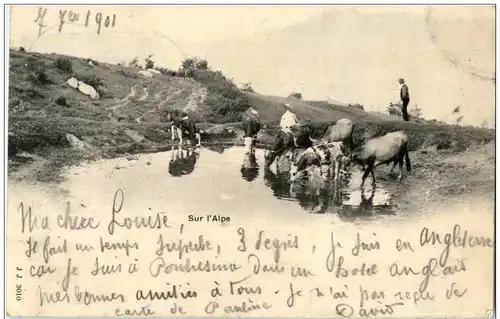 7 7bre 1901
Sur l'Alpe
Ma chère Louise,
Il fait un temps superbe, 3 degrés, je suis en Angleterre
car je suis à Pontresina dans un hotel anglais
mes bonnes amitiés à vous - je n'ai pas reçu de
carte de Pauline David
J. J. 3010